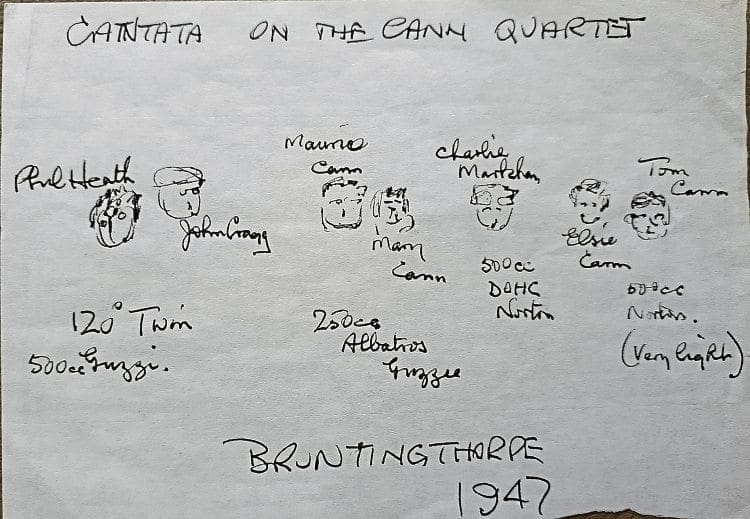 CANTATA ON THE CANN QUARTET
Phil Heath
John Cragg
Maurice
Cann
Mary
Cann
Charlie
Markham
Elsie
Cann
Tom
Cann
120° Twin
500cc Guzzi.
250cc
Albatros
Guzzee
500cc
DOHC
Norton
500cc
Norton.
(Very light)
BRUNTINGTHORPE
1947